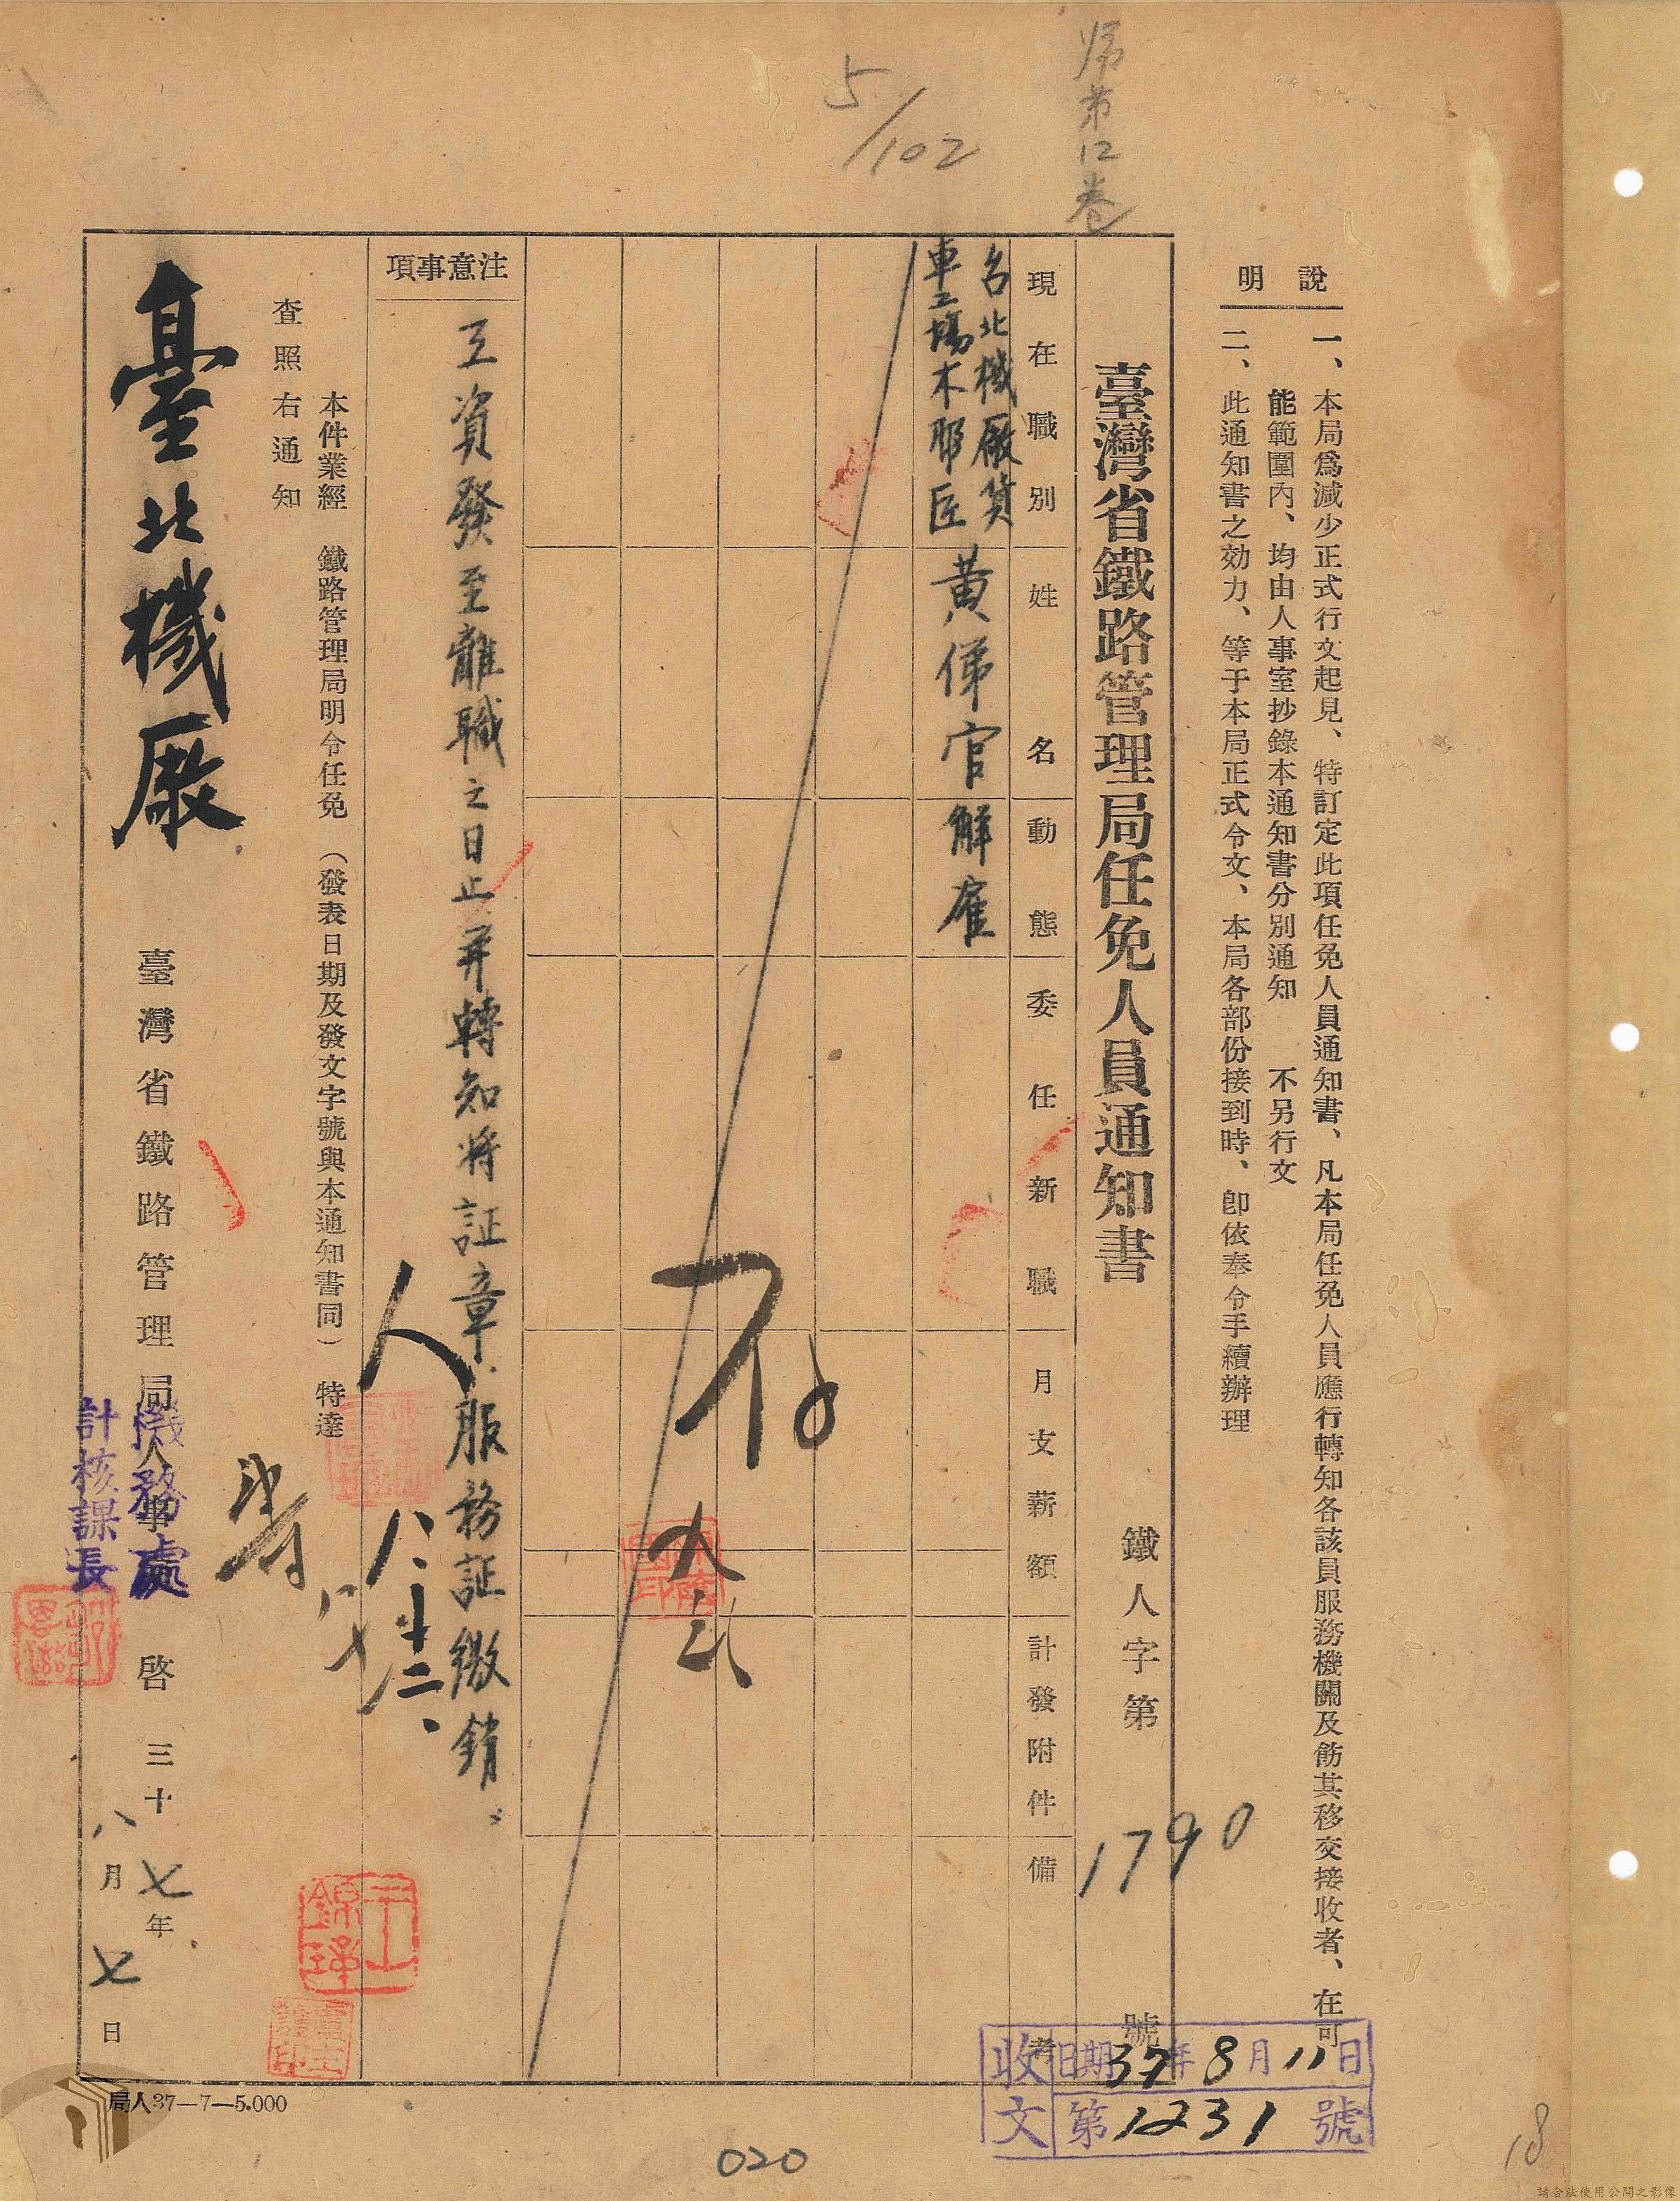 歸第12卷
5/102
說明
一、本局爲減少正式行文起見、特訂定此項任免人員通知書、凡本局任免人員應行轉知各該員服務機關及飭其移交接收者、在可
能範圍內、均由人事室抄錄本通知書分別通知　不另行文
二、此通知書之効力、等于本局正式令文、本局各部份接到時、卽依奉令手續辦理
臺灣省鐵路管理局任免人員通知書
鐵人字第1790號
現在職別
姓名
動態
委任新職
月支薪額
計發附件
備考
台北機廠貨
車工場木耶匠
黃俤官
解雇
存
注意事項
工資發至離職之日止并轉知將証章服務証繳銷、
八、十二、
本件業經　鐵路管理局明令任免　（發表日期及發文字號與本通知書同）　特達
查照右通知
臺北機廠
臺灣省鐵路管理局人事室啓
三十七年
八月七日
機務處
計核課長
收文
日期37年8月11日
第1231號
局人37—7—5.000
020
18
請合法使用公開之影像